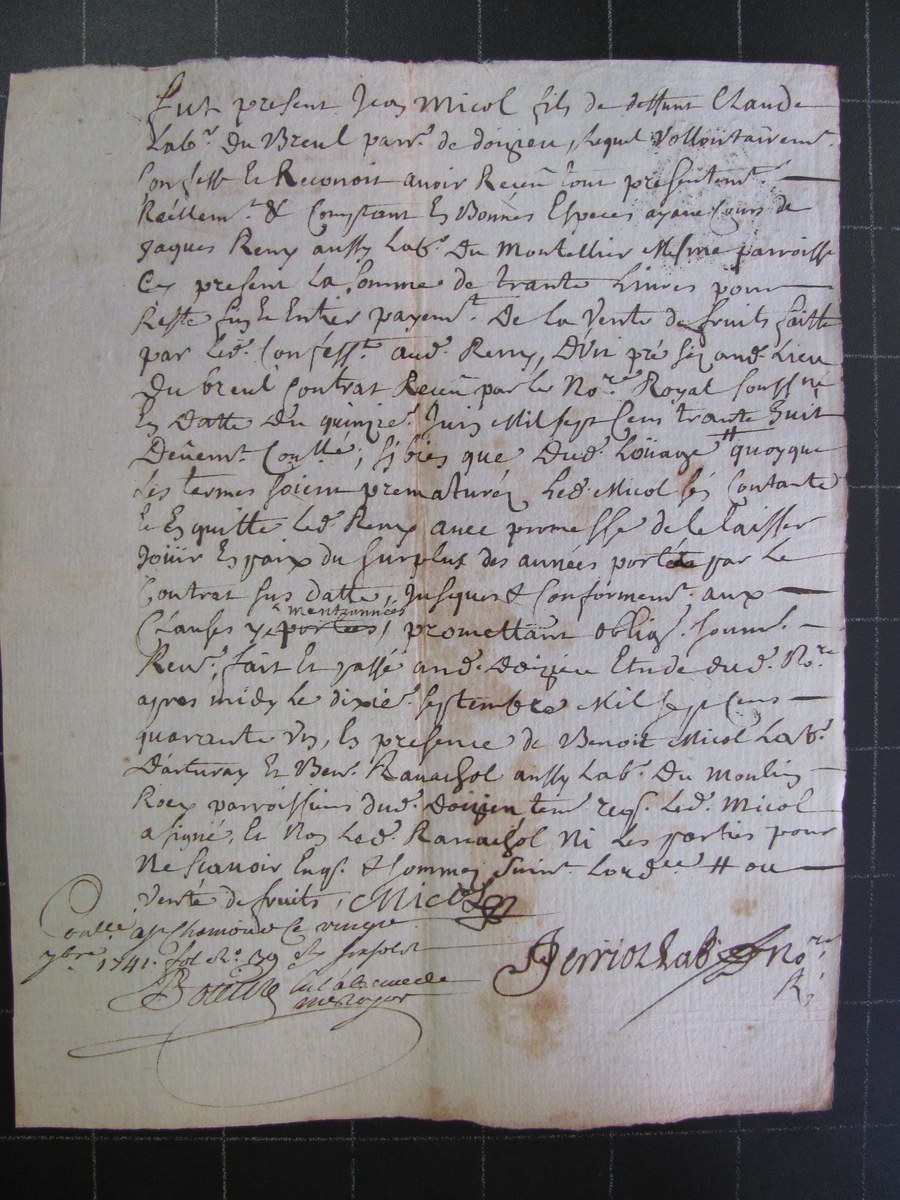 Fut present Jean Micol fils de deffunt Claude
Labr. Du Breul parr. de doizieu, lequel vollontairemt.
Confesse Et Reconoit avoir Receu tout presentemt.
Réellemt. & Comptant En Bonnes Especes ayant Cours de
Jaques Remy aussy Labr. Du Montellier Mesme parroisse
Cy present La somme de trante Livres pour
Reste Entier payemt. De la Vente de fruits faitte
par Led. Confesst. aud. Remy, D'un pré siz aud. Lieu
Du breul Contrat Receu par le Nore. Royal soussné
En Datte Du quinze Juin Mil sept Cens trante huit
Deuemt. Conllé, si bien que Dud. Loüage # quoyque
Les termes soient prematurez Led. Micol s'en Contante
Et En quitte Led. Remy avec promesse de le laisser
Joüir En paix du surplus des années portéz par Le
Contrat sus datté, Jusques & Conformemt. aux
mentionnées
Clauses y portées, promettant oblig. soum.
Ren., fait Et passé aud. Doizieu Etude dud. Nore.
apres midy Le dixie. septembre Mil sept Cens
quarante Un, En presence de Benoit Micol Labr.
D'arturay Et Ben. Ranachol aussy Labr. Du Moulin
parroissiens dud. Doizieu tem. req. Led. Micol
a signé, Et Non Led. Ranachol Ni Les parties pour
Ne sçavoir Enqs. & sommez suivt. Lordce. # ou
Vente de fruits, Micol
Conlle. a St Chamond Ce vingt
7bre 1741. fol. Ro. 39
nore.
R.